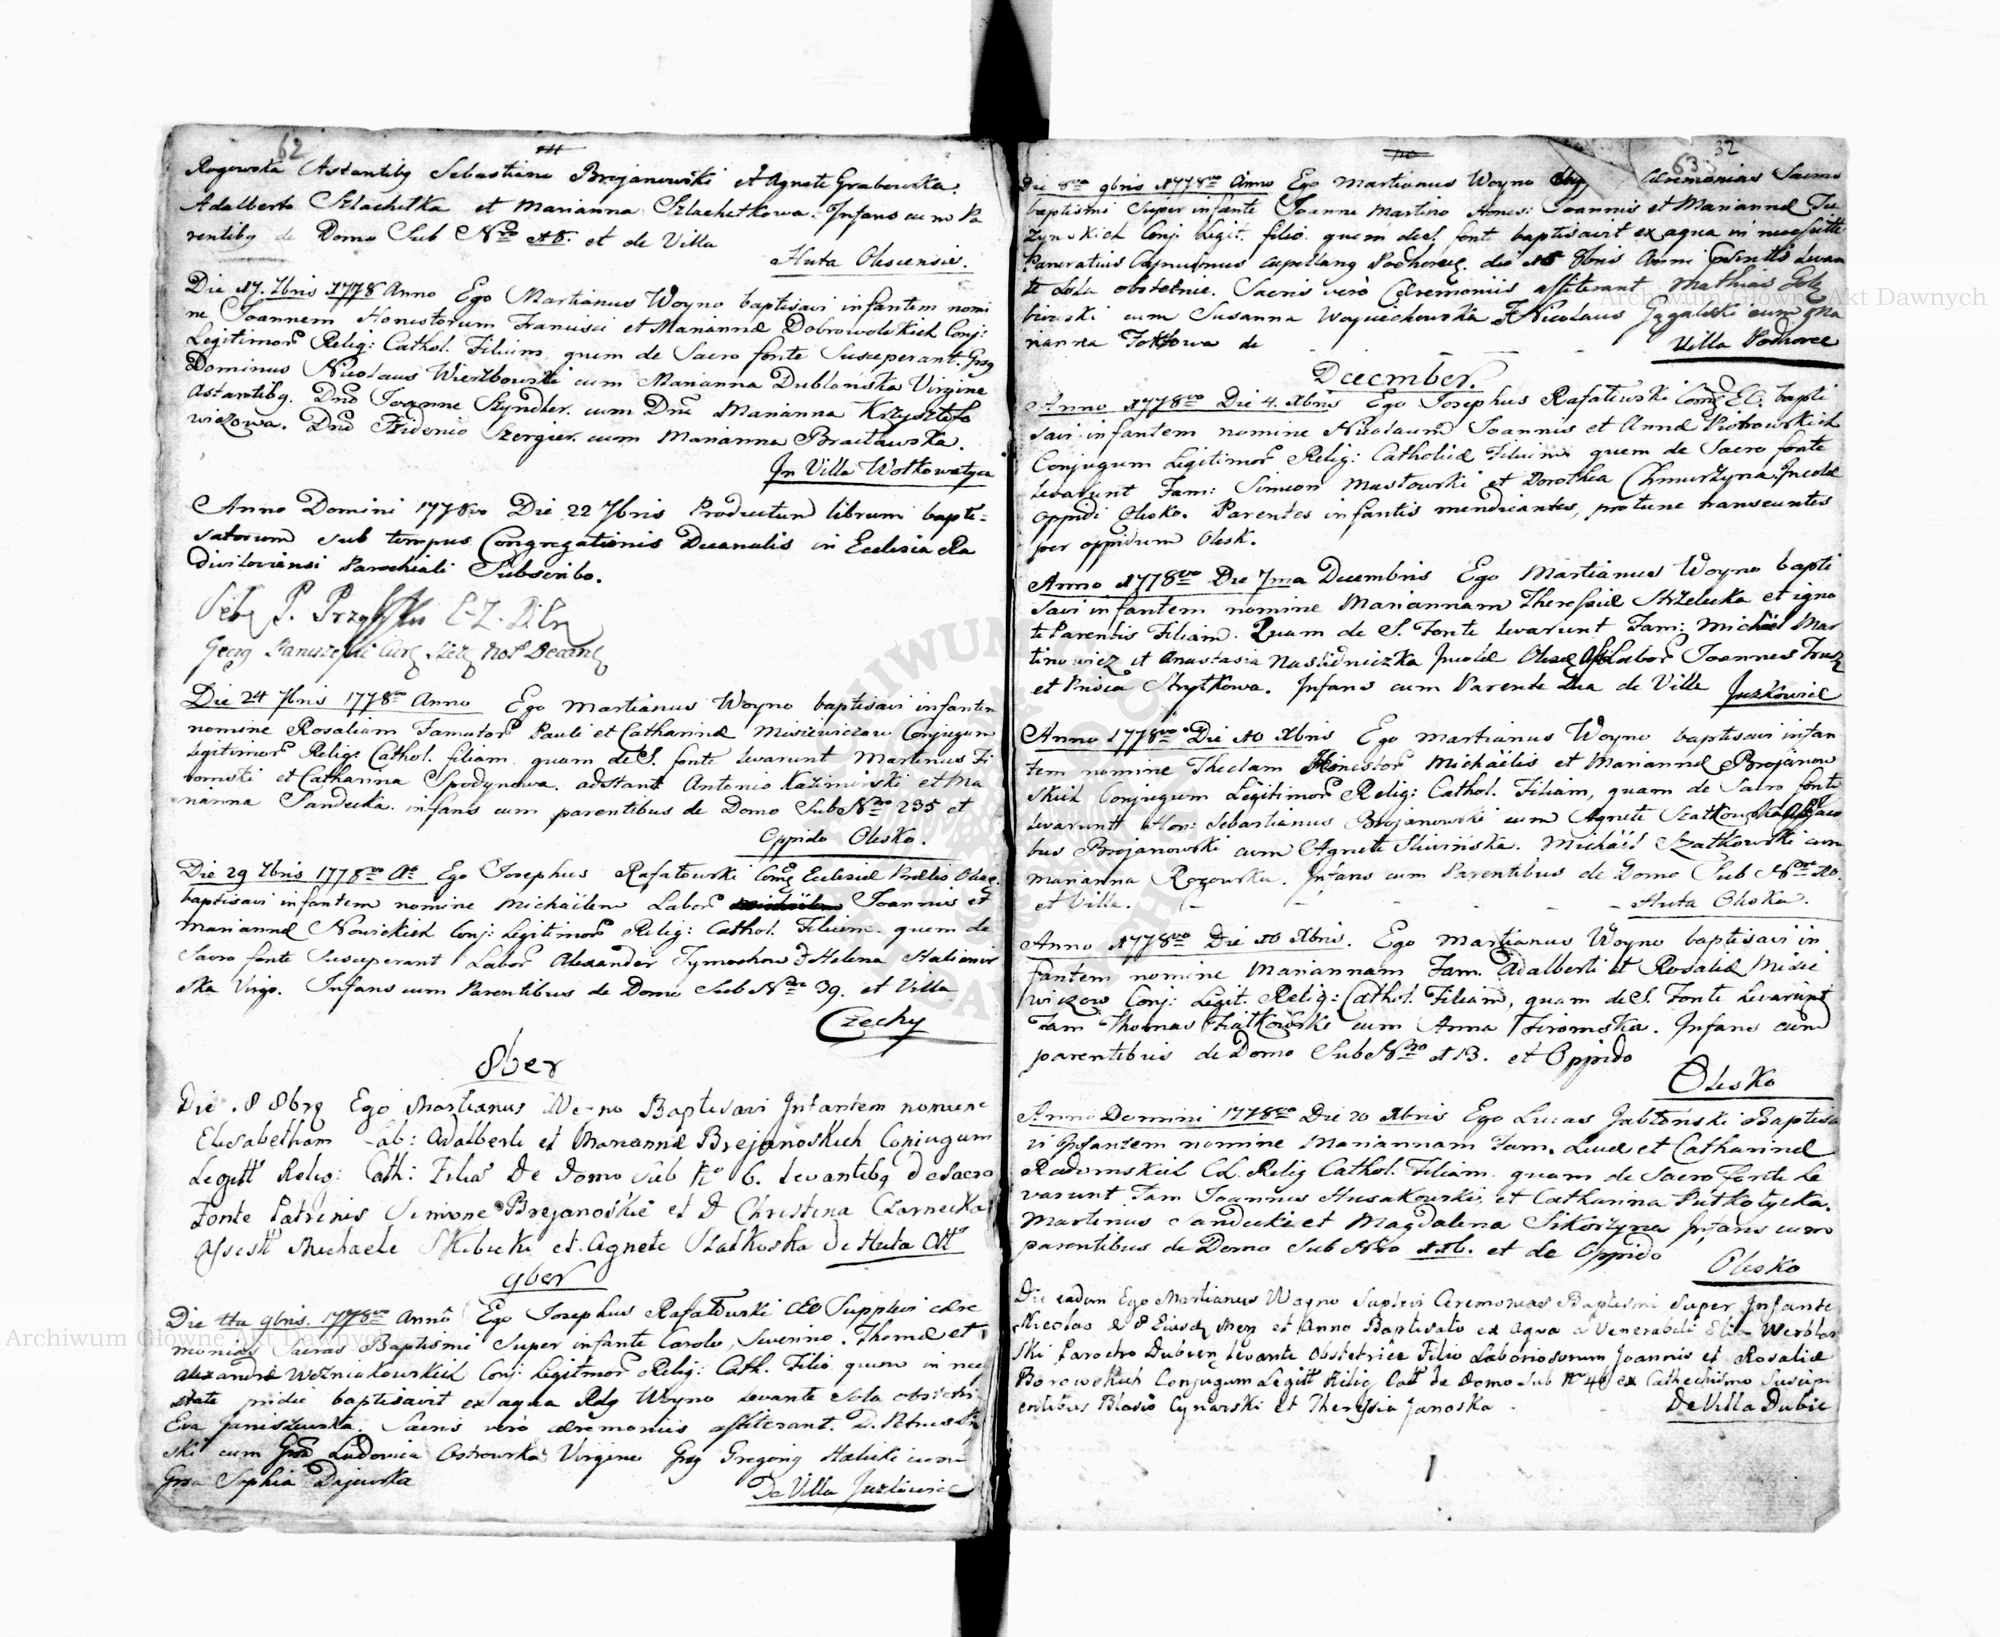 62
Rogowska Astantibq Sebastiano Brejanowski et Agnete Grabowska.
Adalberto Szlachetka et Marianna Szlachetkowa. Infans cum Pa
rentibq de Domo Sub Nro 18. et de Villa
Huta Olescensis.
Die 17. 7bris 1778 Anno Ego Martianus Woyno baptisavi infantem nomi
ne Joannem Honestorum Francisci et Mariannæ Dobrowolskich Conj:
Legitimor Relig: Cathol. Filium, quem de Sacro fonte Susceperant. Gsq
Dominus Nicolaus Wierzbowski cum Marianna Dublańska Virgine
Astantibq. Dno Joanne Szyndler. cum Dna Marianna Krzysztofo
wiczowa. Dno Friderico Szergier. cum Marianna Bracławska.
In Villa Wołkowatyca
Anno Domini 1778vo Die 22 7bris Productum librum bapti=
satorum sub tempus Congregationis Decanalis in Ecclesia Ra
diviloviensi Parochiali Subscribo.
Die 24 7bris 1778vo Anno Ego Martianus Woyno baptisavi infantem
nomine Rosaliam Famator Pauli et Catharinæ Misiewiczow Conjugum
legitimor Relig: Cathol. filiam quam de S. fonte levarunt Martinus Fi
romski et Catharina Spodynowa. adstant Antonio Kazimirski et Ma
rianna Sandecka. infans cum parentibus de Domo Sub Nro 235 et
Oppido Olesko.
Die 29 7bris 1778vo Ao Ego Josephus Rafałowski Comq Ecclesiæ Prælis Olesq.
baptisavi infantem nomine Michaëlem Labor Joannis et
Mariannæ Nowickich Conj: Legitimor Relig: Cathol. Filium. quem de
Sacro fonte Susceperant Labor Alexander Tymochow & Helena Stalionir
ska Virgo. Infans cum Parentibus de Domo Sub Nro 39. et Villa
Czechy
8ber
Die .8 8brq Ego Martianus Woyno Baptisavi Infantem nomine
Elisabetham Lab: Adalberti et Mariannæ Brejanoskich Conjugum
Legitt Relig: Cath: Filia De Domo Sub No 6. Levantibq de Sacro
Fonte Patrinis Simone Brejanoskie et D Christina Czarnecka
Assist Michaele Skibicki et Agnete Szatkoska de Huta Ott
9ber
Die 1ma 9bris. 1778vo Anno Ego Josephus Rafałowski CEO Supplevi cære
monias Sacras Baptismi Super infante Carolo, Severino. Thomæ et
Alexandræ Woźniakowskich Conj: Legitimor Relig: Cath. Filio quem in nece
state pridie baptisavit ex aqua Rdq Woyno Levante Sola obstetri
Eva Janiszewska. Sacris vero cæremoniis assisterant. D. Petrus
ski cum Gsa Ludovica Ostrowska Virgine Gsq Gregorq Halicki cum
Gsa Sophia Dajewska
De Villa Juszkowice
63 32
Die 8va 9bris 1778vo Anno Ego Martianus Woyno Cæremonias Sacras
baptismi Super infante Joanne Martino Hones: Joannis et Mariannæ Tu
rzynskich Conj: Legit. filio. quem baptisavit ex aqua in necessitte
Pancratius capellanq Podhorcq. die 16 8bris Anni Levan
te Sola obstetrice. Sacris vero Cæremoniis assisterant Mathias Goł
biowski cum Susanna Woyciechowska & Nicolaus Jagalski cum Ma
rianna Tokowa de - Villa Podhorce
December.
Anno 1778vo Die 4. Xbris Ego Josephus Rafałowski Comq EC. bapti
savi infantem nomine Nicolaum Joannis et Annæ Piotrowskich
Conjugum Legitimor Relig: Catholicæ Filium quem de Sacro fonte
levarunt Fam: Simeon Masłowski et Dorothea Chmurzyna Incolæ
oppidi Olesko. Parentes infantis mendicantes, protunc transeuntes
per oppidum Olesk.
Anno 1778vo Die 7ma Decembris Ego Martianus Woyno bapti
savi infantem nomine Mariannam Theressiæ Strzelecka et igno
ti Parentis Filiam. Quam de S. Fonte levarunt Fam: Michael Mar
tinowicz et Anastasia Nasiedniczka Incolæ Joannes
et Prisca Strytkowa. Infans cum Parente Sua de Villa Juszkowice
Anno 1778vo Die 10 Xbris Ego Martianus Woyno baptisavi infan
tem nomine Theclam Honestor Michaëlis et Mariannæ Brejanow
skich Conjugum Legitimor Relig: Cathol. Filiam, quam de Sacro fonte
levarunt Hon: Sebastianus Brejanowski cum Agnete Szatkowska Jaco
bus Brejanowski cum Agnete Sliwinska. Michael Szatkowski cum
Marianna Rogowska. Infans cum Parentibus de Domo Sub Nro 10.
et Villa. - Huta Oleska.
Anno 1778vo Die 10 Xbris. Ego Martianus Woyno baptisavi in
fantem nomine Mariannam Fam. Adalberti et Rosaliæ Misie
wiczow Conj: Legit. Relig: Cathol. Filiam, quam de S. Fonte levarunt
Fam Thomas Fiałkowski cum Anna Firomska. Infans cum
parentibus de Domo Sub Nro 113. et Oppido
Olesko
Anno Domini 1778vo Die 20 Xbris Ego Lucas Jabłoński Baptisa
vi Infantem nomine Mariannam Fam. Lucæ et Catharinæ
Radomskich CL. Relig Cathol. Filiam quam de Sacro Fonte Le
varunt Fam Joannus Husakowski et Catharina Putkołycka.
Martinus Sandecki et Magdalena Sikorzyna Infans cum
parentibus de Domo Sub Nro 116. et de Oppido
Olesko
Die eadem Ego Martianus Woyno Suplevi Ceremonias Baptismi Super Infante
Nicolao & 8 Ejusdq Mens et Anno Baptisato ex aqua a Venerabili Elia Werblan
ski Parocho Dubienq Levante Obstetrice Filio Laboriosorum Joannis et Rosaliæ
Borowskich Conjugum Legitt Relig Catt de Domo Sub No 40 ex Cathechismo Suscipi
entibus Blasio Cynarski et Theressia Janoska
De Villa Dubie
Archiwum Główne Akt Dawnych
Archiwum Główne Akt Dawnych